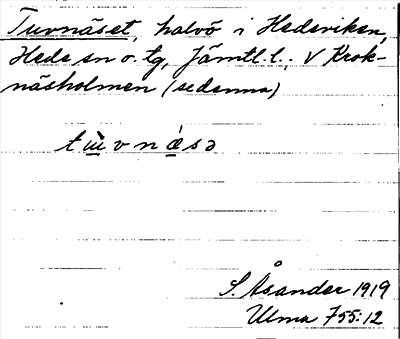 Tuvnäset, halvö i Hedeviken,
Hede sn o. tg, Jämtl. l.; V Krok-
näsholmen (sedenna)
S. Åsander 1919
Ulma 755:12